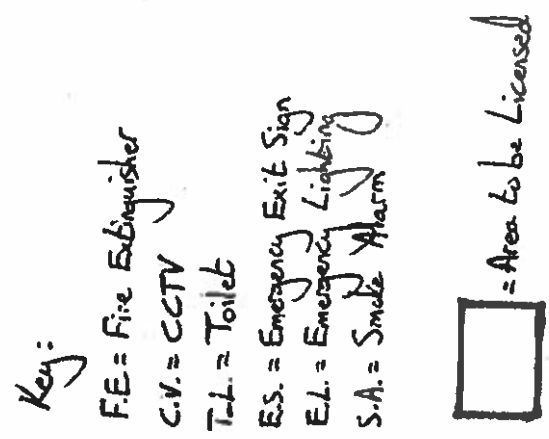 Key:
F.E. = Fire Extinguisher
C.V. = CCTV
T.L. = Toilet
E.S. = Emergency Exit Sign
E.L. = Emergency Lighting
S.A. = Smoke Alarm
= Area to be Licensed